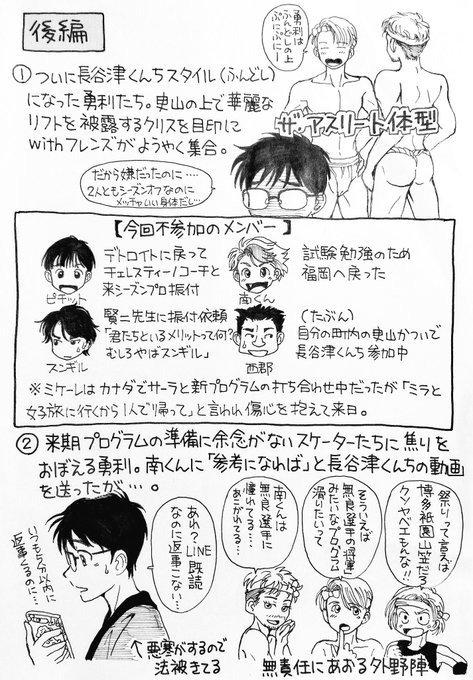 後編
勇利は
ふんどしの上
ぷにぷにー!
①ついに長谷津くんちスタイル(ふんどし)
になった勇利たち。曳山の上で華麗な
リフトを披露するクリスを目印に
withフレンズがようやく集合。
ザ・アスリート体型
だから嫌だったのに…
2人ともシーズンオフなのに
メッチャいい身体だし…
【今回不参加のメンバー】
ピチット
デトロイトに戻って
チェレスティーノコーチと
来シーズンプロ振付
南くん
試験勉強のため
福岡へ戻った
スンギル
賢二先生に振付依頼
「君たちといるメリットって何?
むしろやばスンギル」
西郡
(たぶん)
自分の町内の曳山かついで
長谷津くんち参加中
※ミケーレはカナダでサーラと新プログラムの打ち合わせ中だったが「ミラと
女子旅に行くから1人で帰って」と言われ傷心を抱えて来日。
②来期プログラムの準備に余念がないスケーターたちに焦りを
おぼえる勇利。南くんに「参考になれば」と長谷津くんちの動画
を送ったが…。
祭りって言えば
博多祇園山笠だろ
クソヤベエもんな!!
そういえば
無良選手の「将軍」
みたいなプログラム
滑りたいって
南くんは
無良選手に
憧れてる…
あこがれてる…
あれ?LINE
既読
なのに返事こない…
いつも5分以内に
返事くるのに…
↑悪寒がするので
法被きてる
無責任にあおる外野陣